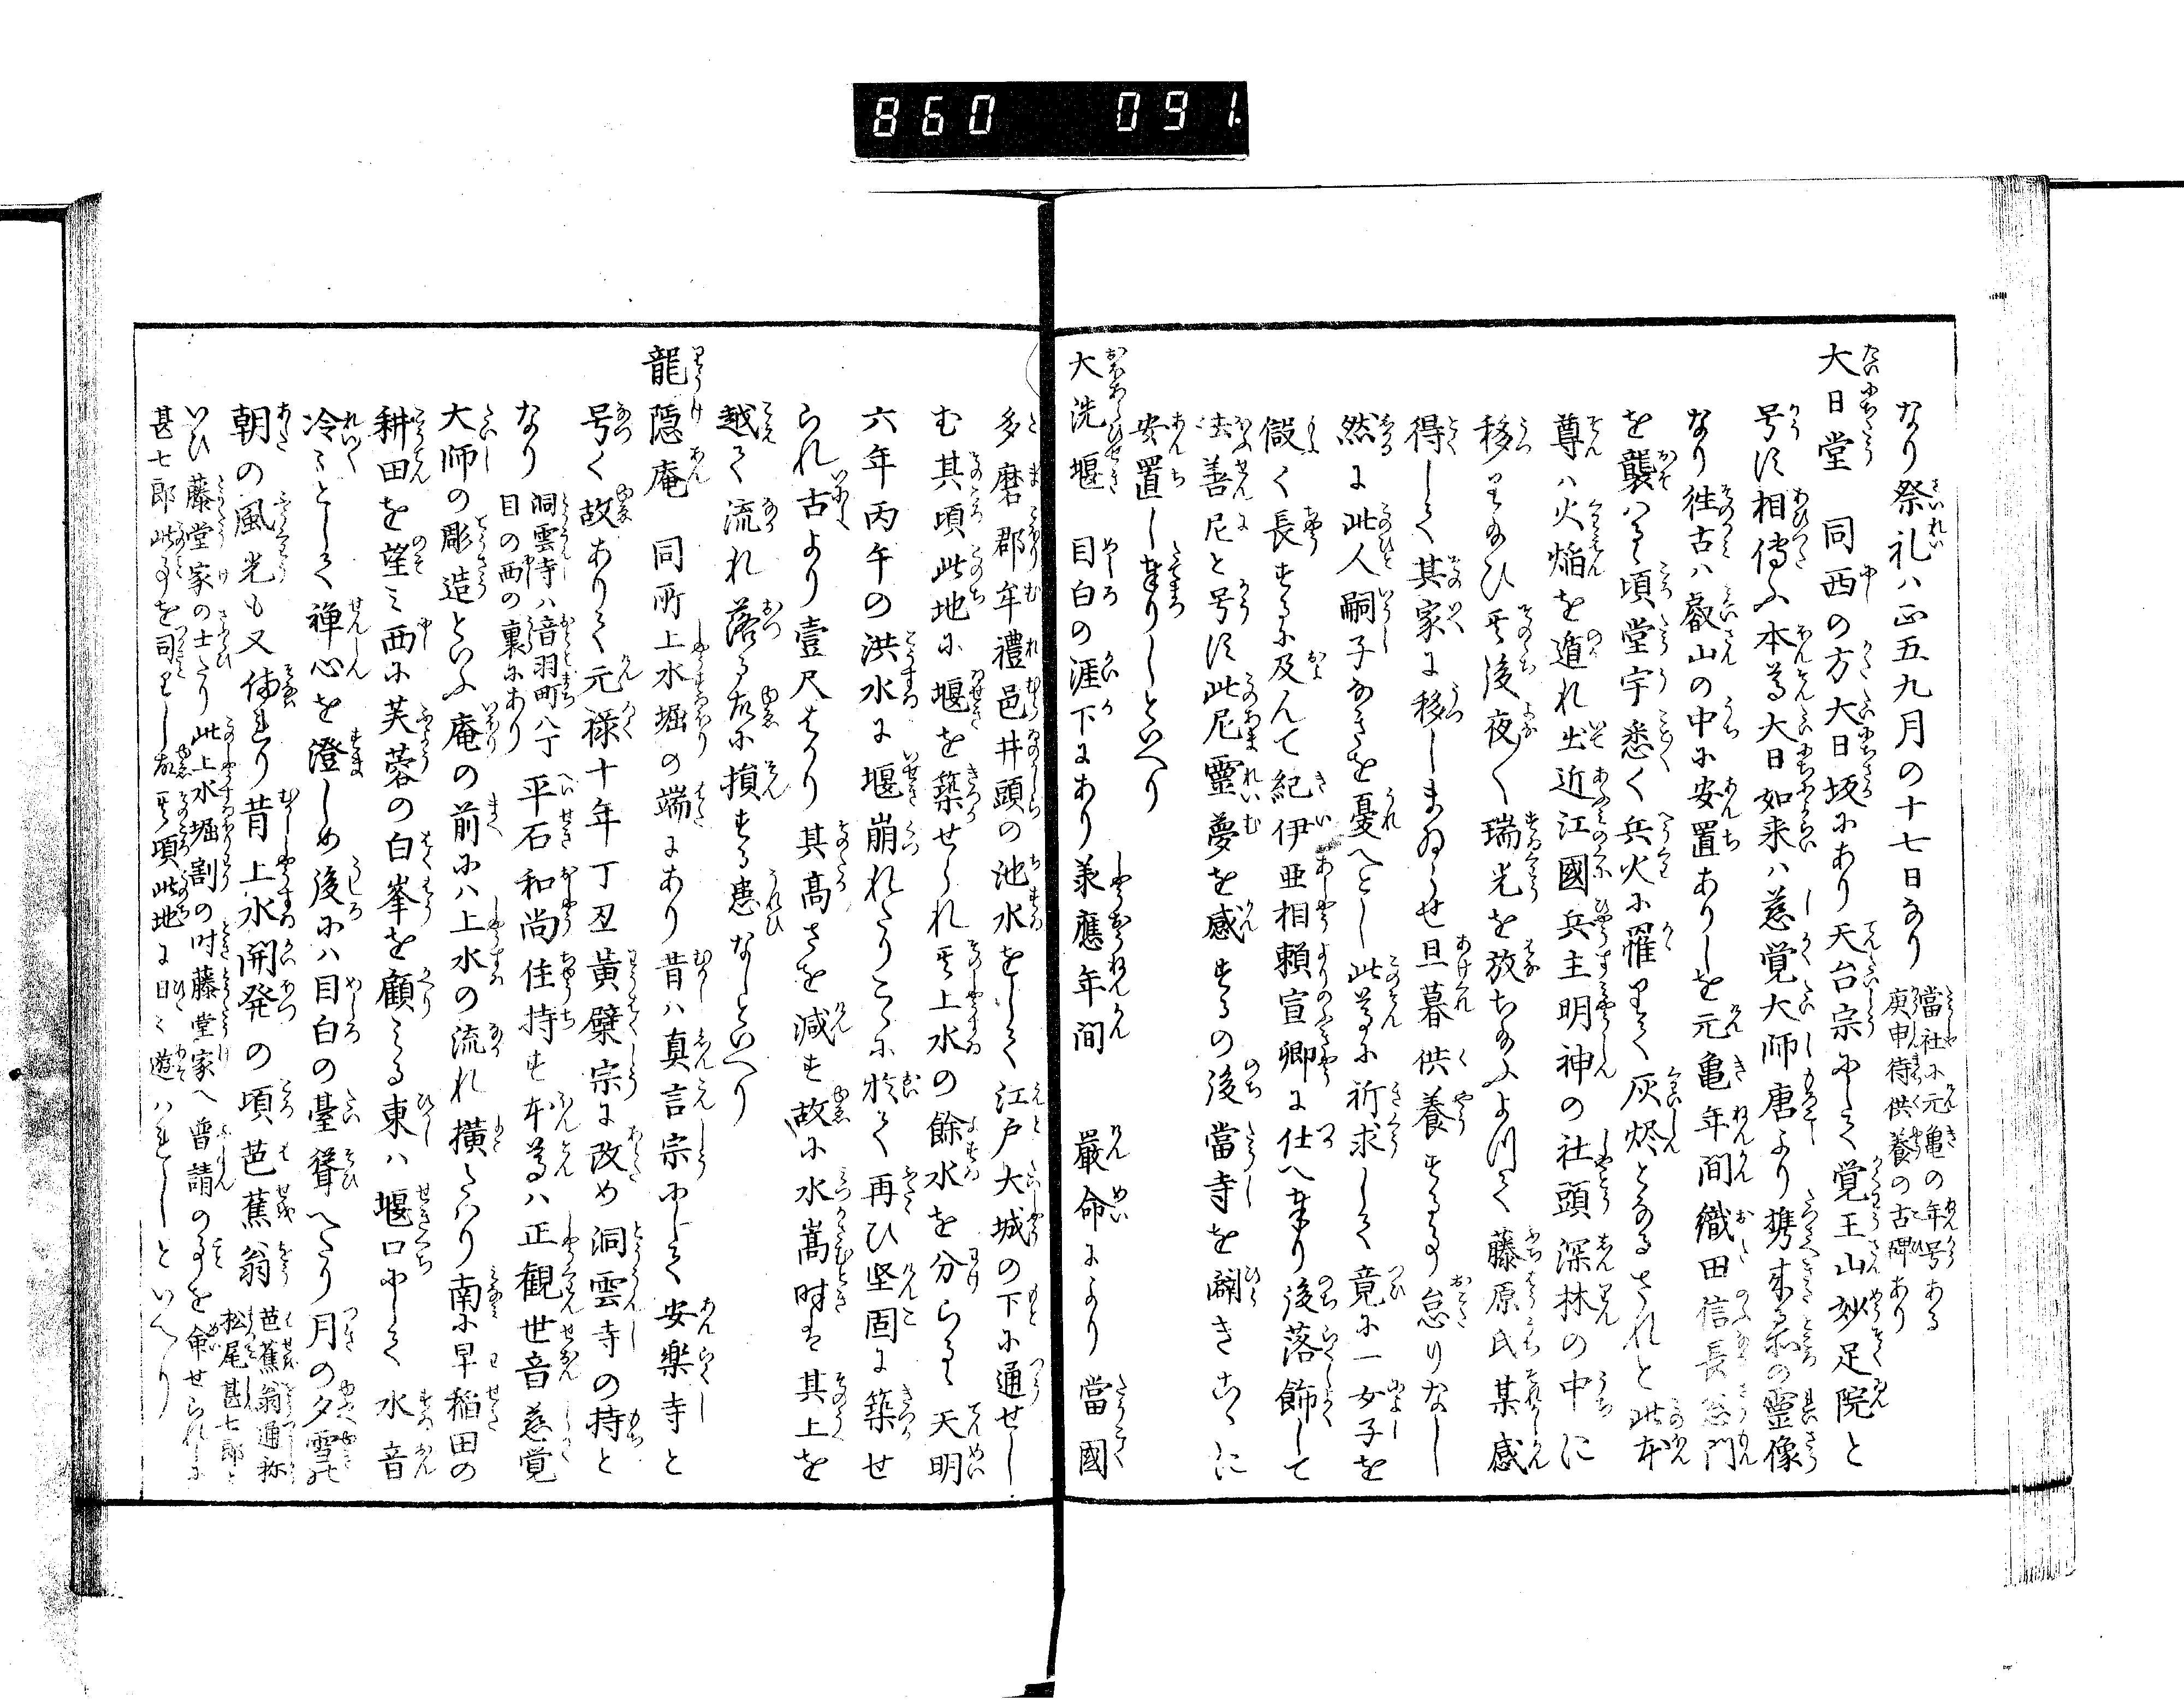 860 091
なり祭礼ハ正五九月の十七日なり 當社に元亀の年号ある
庚申待供養の古碑あり
大日堂 同西の方大日坂にあり天台宗にして覚王山妙足院と
号す相傳ふ本尊大日如来ハ慈覚大師唐より携来る所の霊像
なり往古ハ叡山の中に安置ありしを元亀年間織田信長山門
を襲ハるゝ頃堂宇悉く兵火に罹りて灰烬となるされと此本
尊ハ火焔を遁れ出近江國兵主明神の社頭深林の中に
移りたまひ其後夜〱瑞光を放ちたまふよつて藤原氏某感
得して其家に移しまゐらせ旦暮供養する事怠りなし
然に此人嗣子なきを憂へとし此尊に祈求して竟に一女子を
儲く長するに及んて紀伊亜相頼宣卿に仕へ奉り後落飾して
法善尼と号す此尼霊夢を感するの後當寺を闢きこゝに
安置し奉りしといへり
大洗堰 目白の涯下にあり承應年間 厳命により 當國
多磨郡牟禮邑井頭の池水をして江戸大城の下に通せし
む其頃此地に堰を築せられ其上水の餘水を分らる天明
六年丙午の洪水に堰崩れたりこゝに於て再ひ堅固に築せ
られ古より壹尺はかり其高さを減す故に水嵩時は其上を
越て流れ落る故に損する患なしといへり
龍隠庵 同所上水堀の端にあり昔ハ真言宗にして安樂寺と
号く故ありて元禄十年丁丑黄檗宗に改め洞雲寺の持と
なり 洞雲寺ハ音羽町八丁
目の西の裏にあり 平石和尚住持す本尊ハ正観世音慈覚
大師の彫造といふ庵の前にハ上水の流れ横たハり南に早稲田の
耕田を望ミ西に芙蓉の白峯を顧ミる東ハ堰口にして水音
冷〻として禅心を澄しめ後にハ目白の臺聳へたり月の夕雪の
朝の風光も又備れり昔上水開発の頃芭蕉翁 芭蕉翁通称
松尾甚七郎と
いひ藤堂家の士たり此上水堀割の時藤堂家へ普請の事を命せられしに
甚七郎此事を司りし故其頃此地に日〻遊ハれしといへり